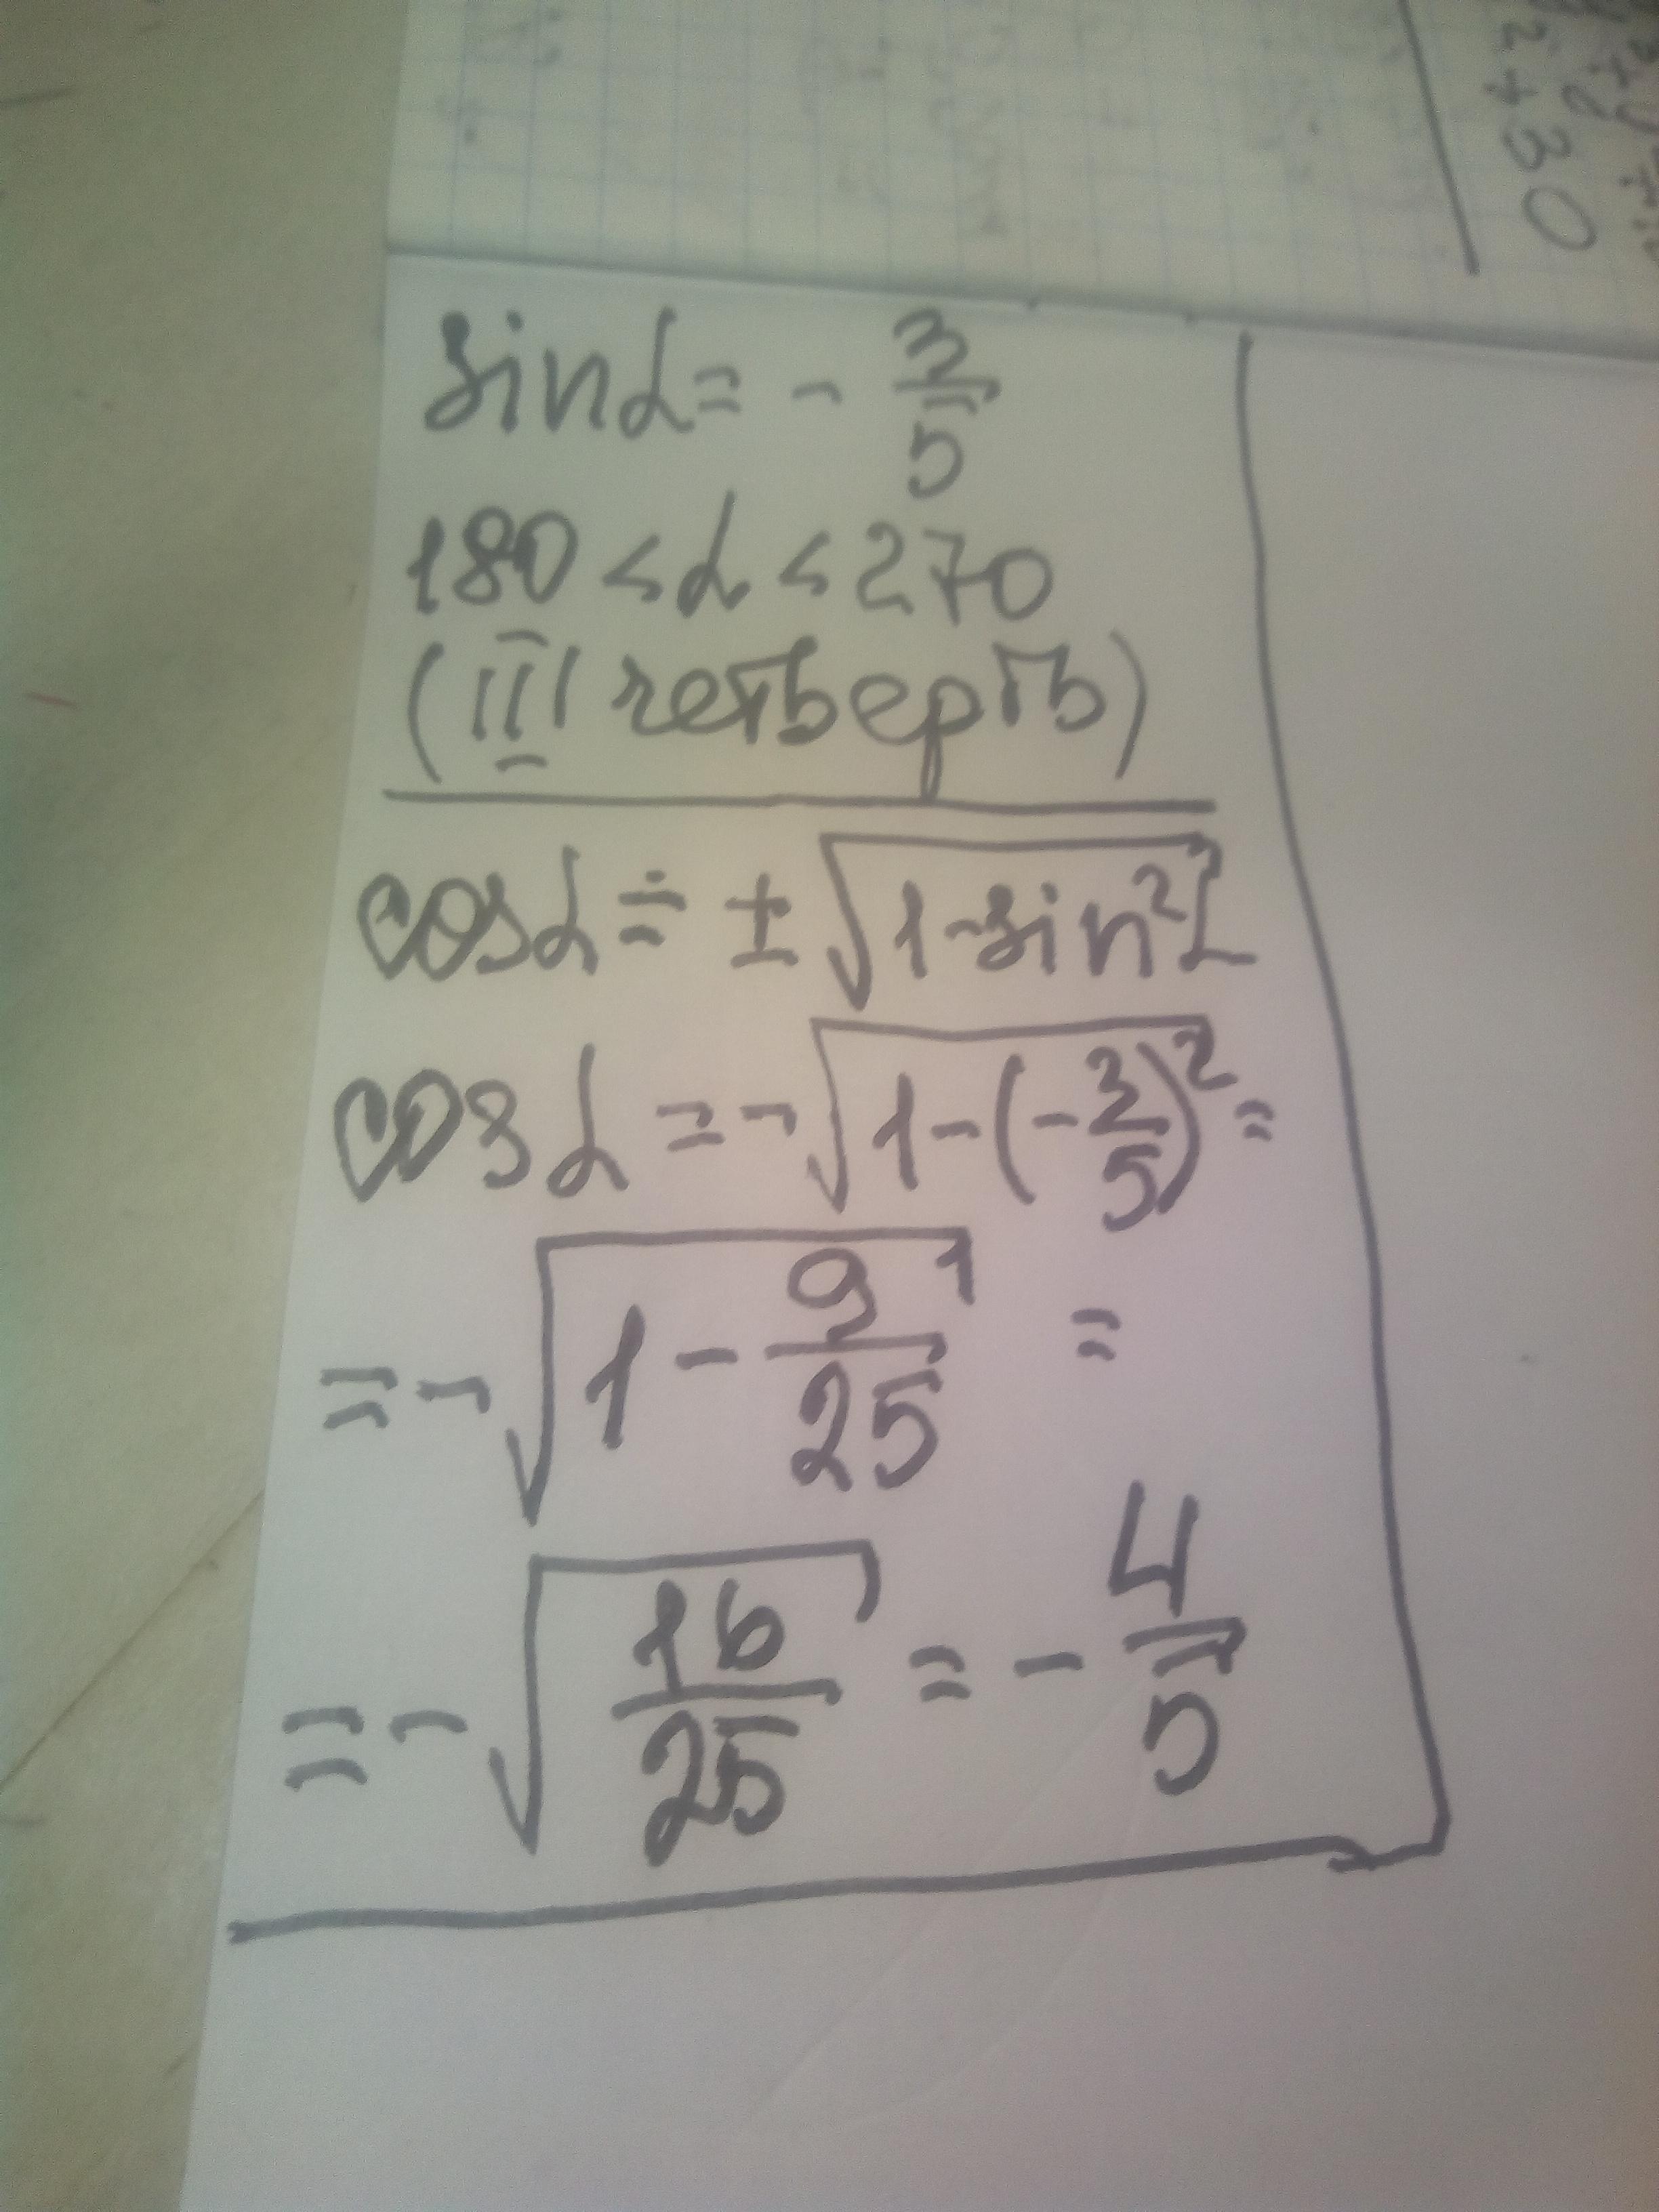 2430
sinα = - 3/5
180 < α < 270
(III четверть)
cosα = ± √(1-sin²α)
cosα = - √(1-(-3/5)²) =
= - √(1 - 9/25) =
= - √(16/25) = - 4/5